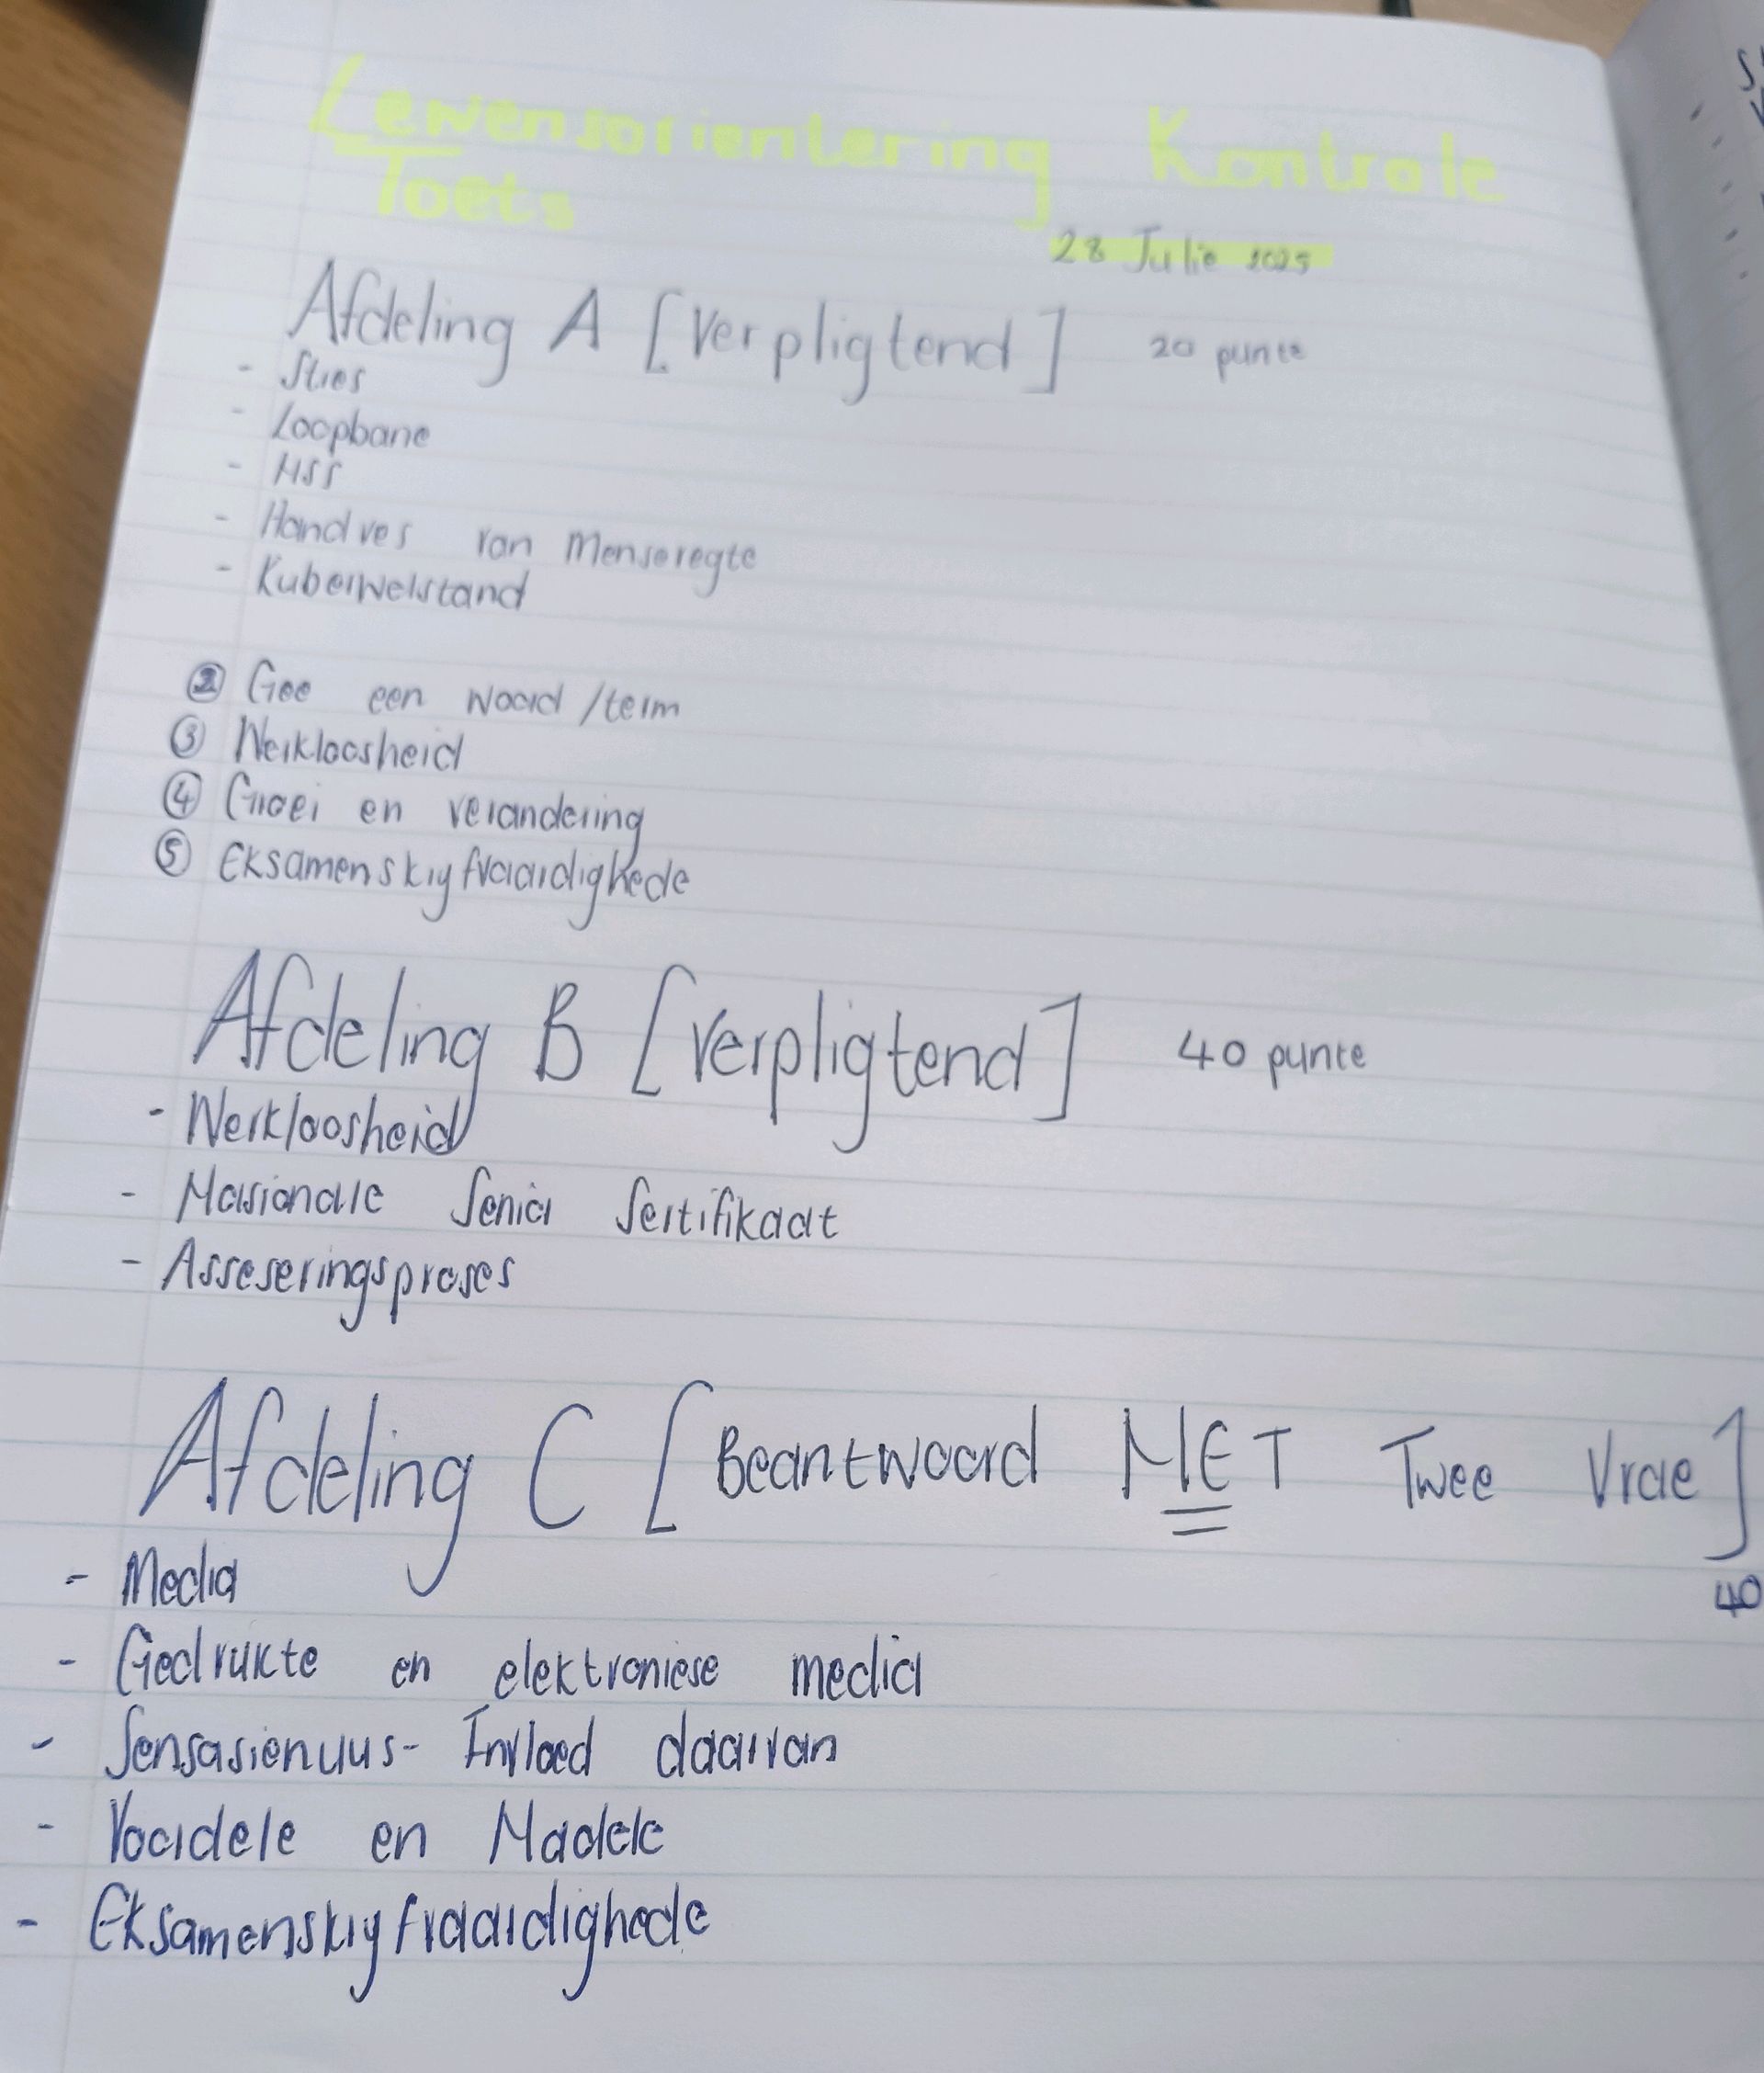 Lewensorientering Kontrole
Toets
28 Julie 2025
Afdeling A [Verpligtend] 20 punte
- Stres
- Loopbane
- NSS
- Handves van Menseregte
- Kuberwelstand
② Gee een woord/term
③ Werkloosheid
④ Groei en verandering
⑤ Eksamenskryfvaardighede
Afdeling B [Verpligtend] 40 punte
- Werkloosheid
- Nasionale Senior Sertifikaat
- Asseseringsproses
Afdeling C [Beantwoord NET Twee Vrae]
40
- Media
- Gedrukte en elektroniese media
- Sensasienuus- Invloed daarvan
- Voordele en Nadele
- Eksamenskryfvaardighede